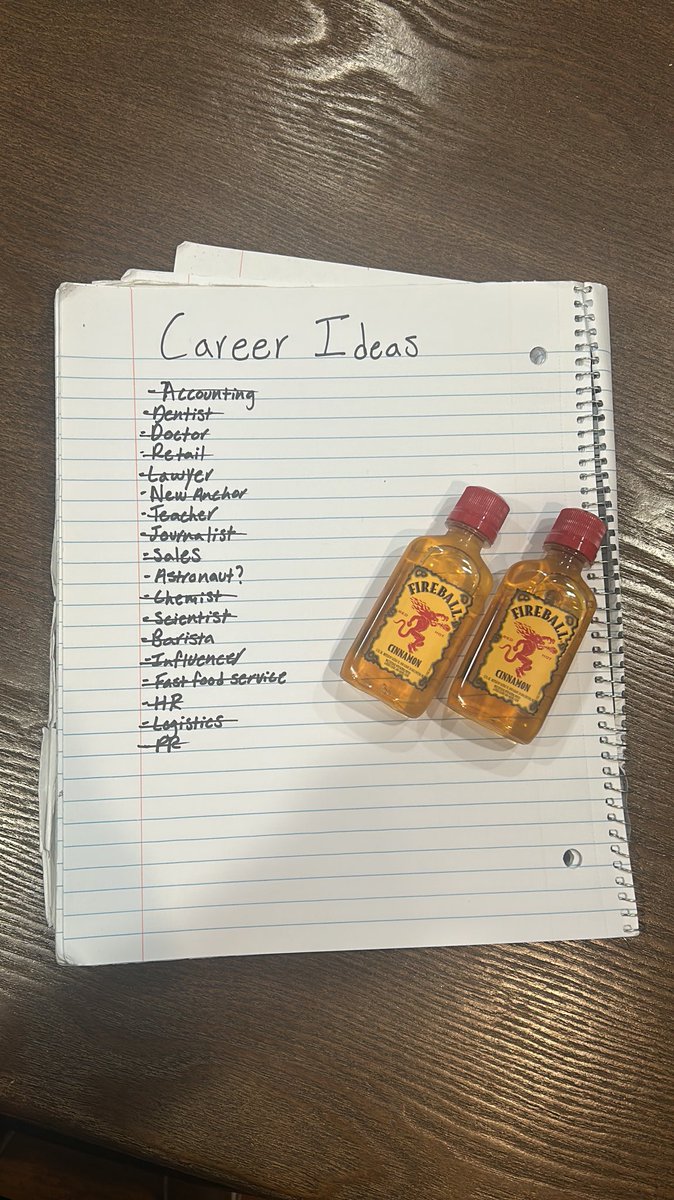 Career Ideas
- Accounting
- Dentist
- Doctor
- Retail
- Lawyer
- New Anchor
- Teacher
- Journalist
- Sales
- Astronaut?
- Chemist
- Scientist
- Barista
- Influencer
- Fast food service
- HR
- Logistics
- PR
FIREBALL
RED HOT
CINNAMON
FIREBALL
RED HOT
CINNAMON